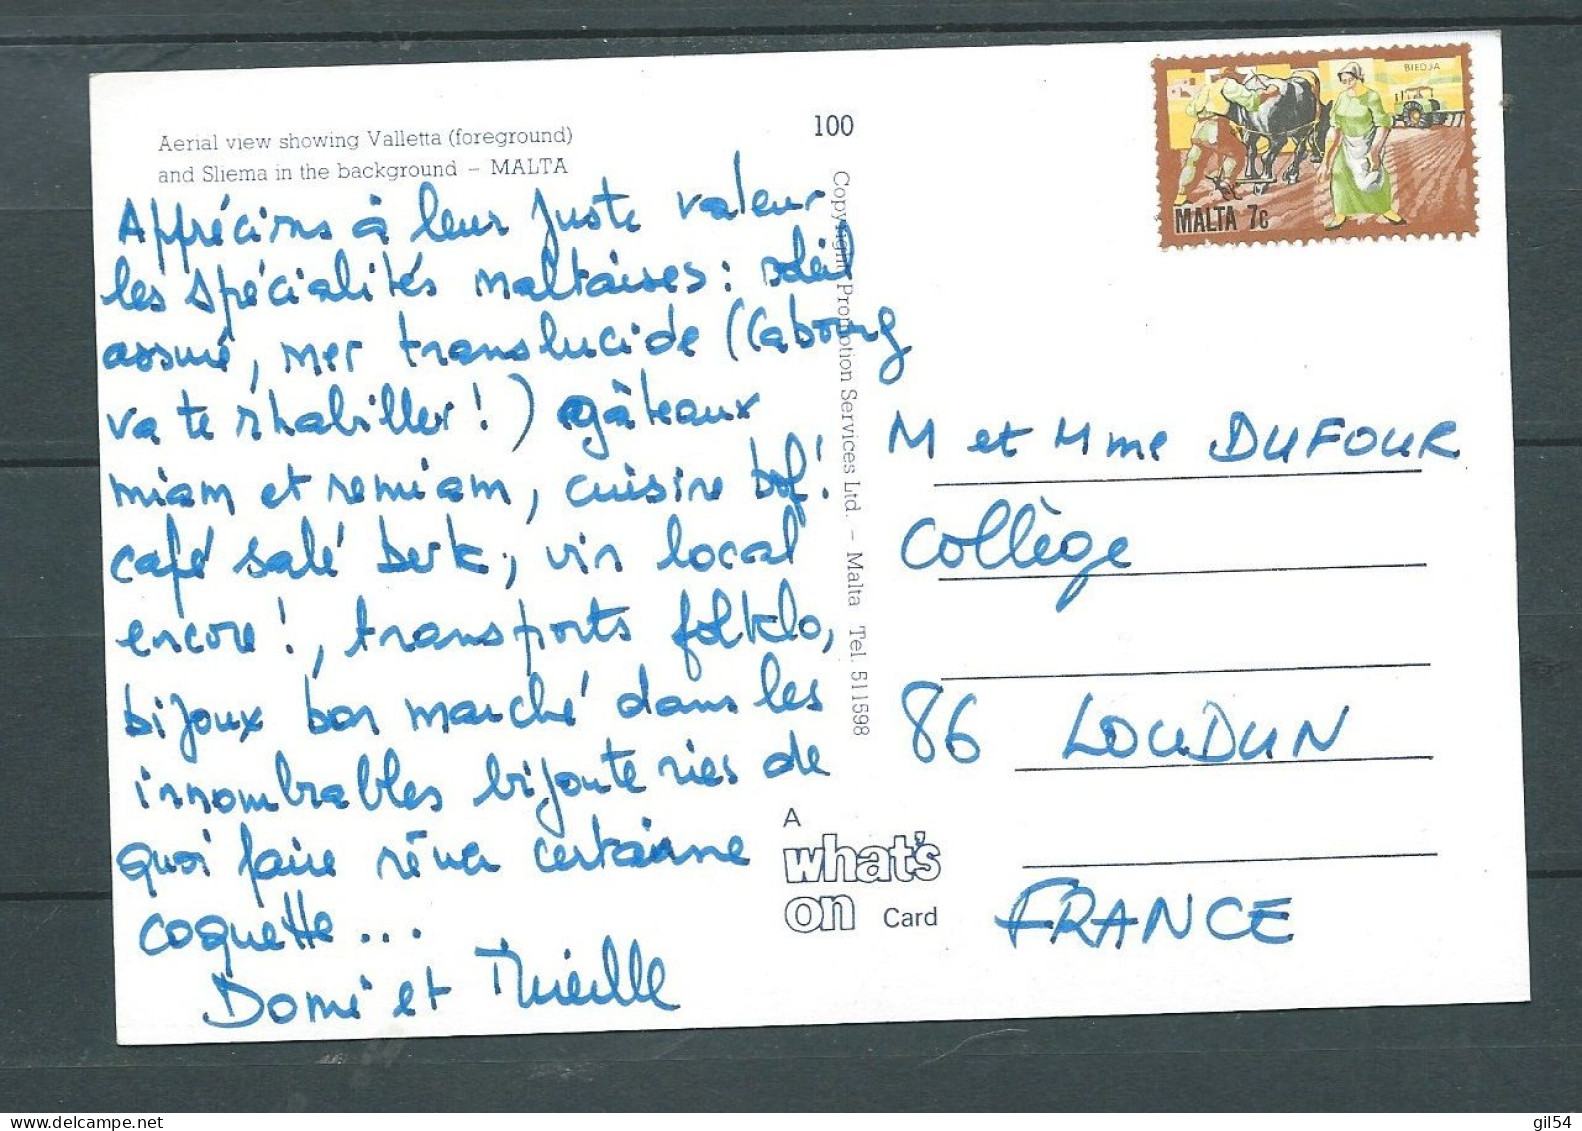 Aerial view showing Valletta (foreground)
and Sliema in the background – MALTA
100
BIEDJA
MALTA 7c
Apprécions à leur juste valeur
les spécialités maltaises : soleil
assuré, mer translucide (Cabourg
va te rhabiller !) gâteaux
miam et remiam, cuisine bof !
café salé berk, vin local
encore !, transports folklo,
bijoux bon marché dans les
innombrables bijouteries de
quoi faire rêver certaine
coquette...
Domi et Mireille
Copyright Promotion Services Ltd. – Malta Tel. 511598
A
what's
on Card
M et Mme DUFOUR
Collège
86 LOUDUN
FRANCE
gil54